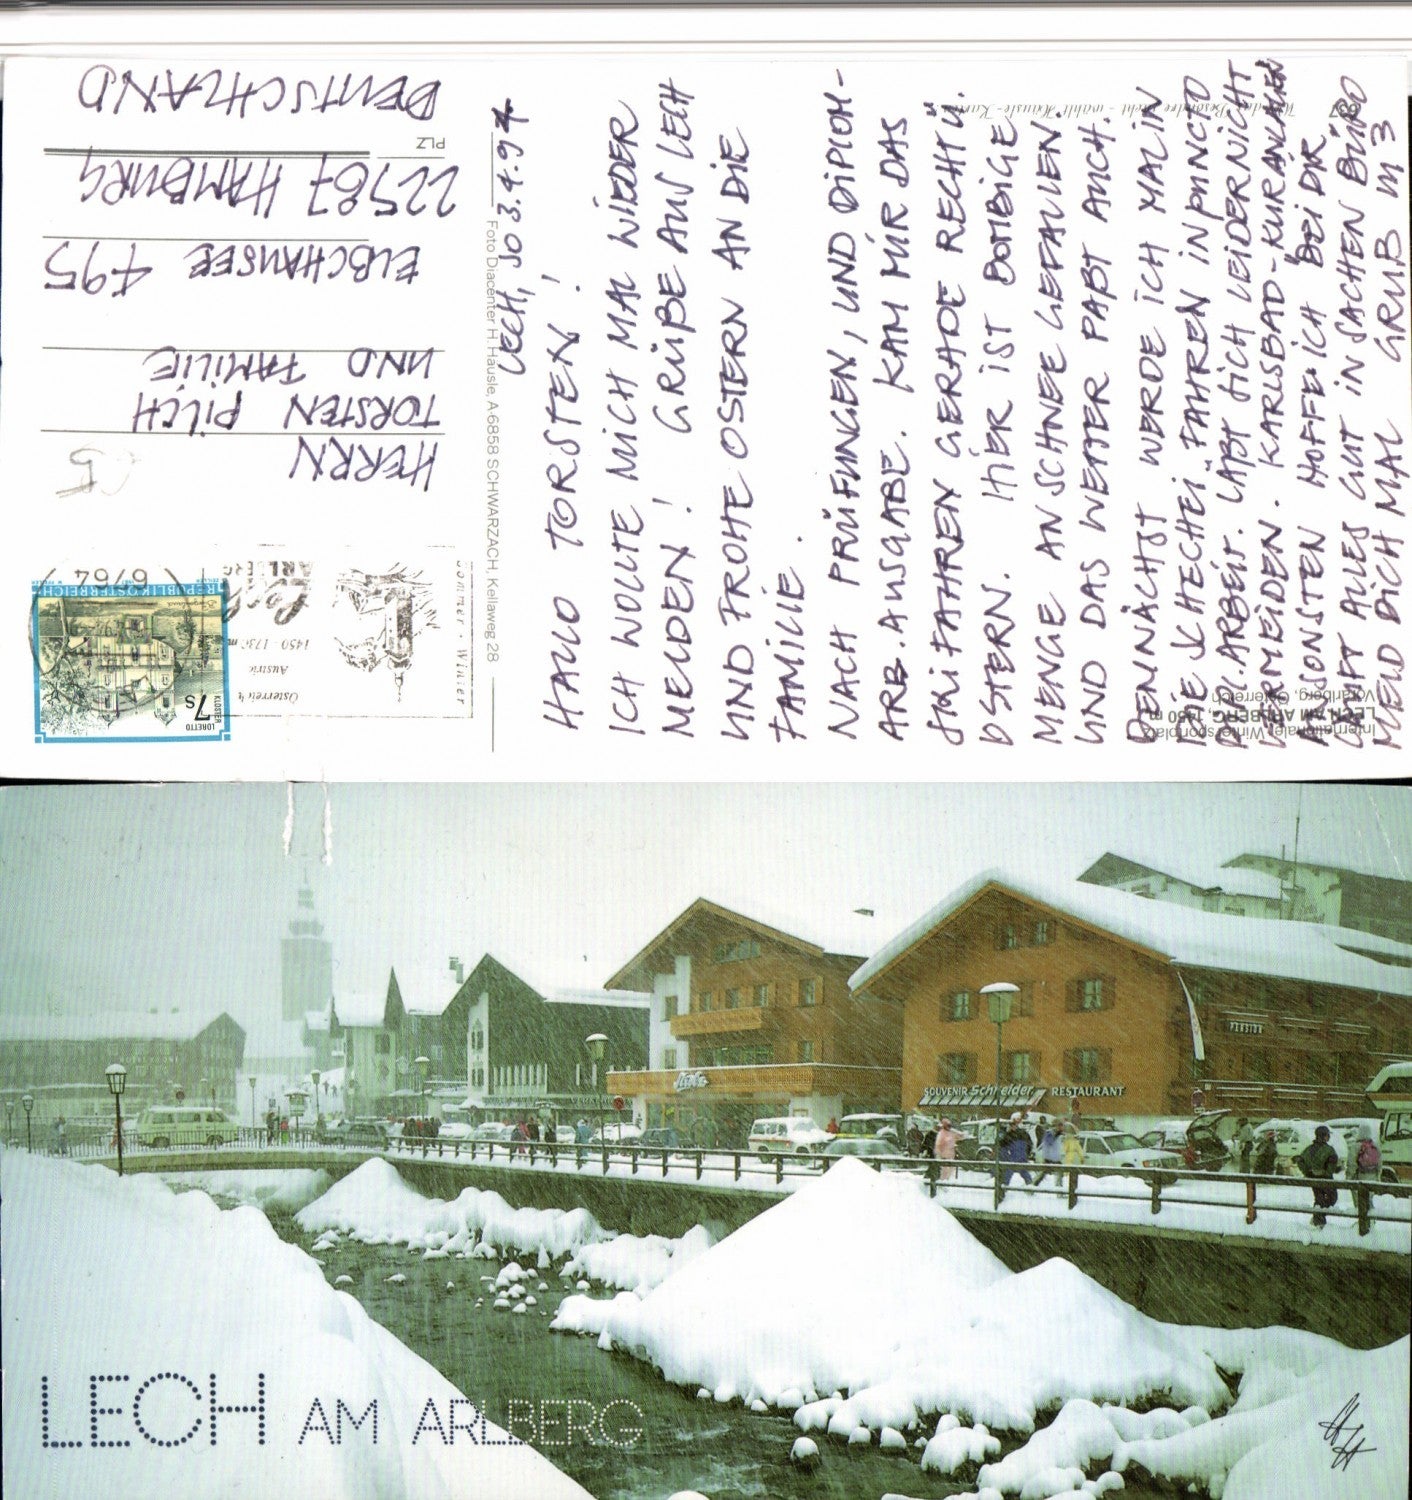 LECH, SO 3.4.94
HALLO TORSTEN!
ICH WOLLTE MICH MAL WIEDER
MELDEN! GRÜßE AUS LECH
UND FROHE OSTERN AN DIE
FAMILIE.
NACH PRÜFUNGEN, UND DIPLOM-
ARB.AUSGABE. KAM MIR DAS
SKIFAHREN GERADE RECHT Ü.
OSTERN. HIER IST BOMBIGE
MENGE AN SCHNEE GEFALLEN
UND DAS WETTER PAßT AUCH.
DEMNÄCHST WERDE ICH MAL IN
DIE SCHECHEI FAHREN IN PUNCTO
DPL.ARBEIT. LÄßT SICH LEIDER NICHT
VERMEIDEN. KARLSBAD-KURANLAGEN
ANSONSTEN HOFFE ICH, BEI DIR
LÄUFT ALLES GUT IN SACHEN BÜRO
MELD DICH MAL GRUß
HERRN
TORSTEN PILCH
UND FAMILIE
ELBCHAUSEE 495
22587 HAMBURG
PLZ
DEUTSCHLAND
Foto Diacenter H. Häusle, A-6858 SCHWARZACH, Kellaweg 28
Wer das Besondere sucht - wählt Häusle-Karten
637
Internationaler Wintersportplatz
LECH AM ARLBERG, 1450 m
Vorarlberg, Österreich
LORETTO
KLOSTER
7s
Burgenland
REPUBLIK ÖSTERREICH
6764
Österreich
Austria
1450 - 1730 m
Lech
ARLBERG
Sommer · Winter
SOUVENIR Schneider RESTAURANT
PENSION
LECH AM ARLBERG